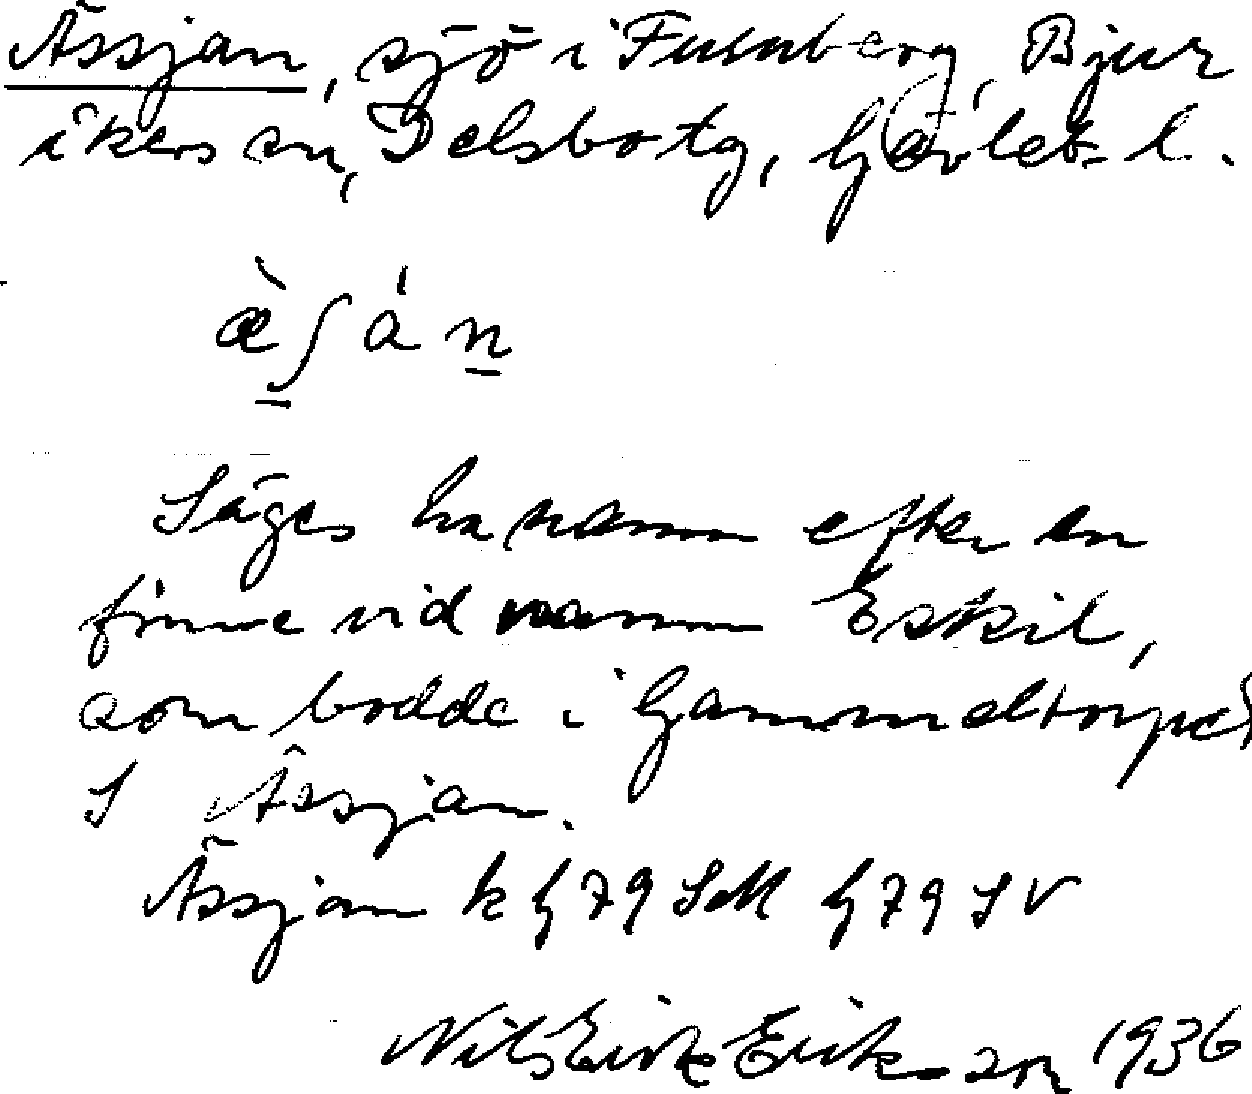 Ässjan, sjö i Furuberg, Bjur
åkers sn, Delsbo tg, Gävleb. l.
æ̀ʃán
Säges ha namn efter en
finne vid namn Eskil,
som bodde i Gammeltorpet
S Ässjan.
Ässjan k G 79 SM G 79 SV
Nils Erik Eriksson 1936